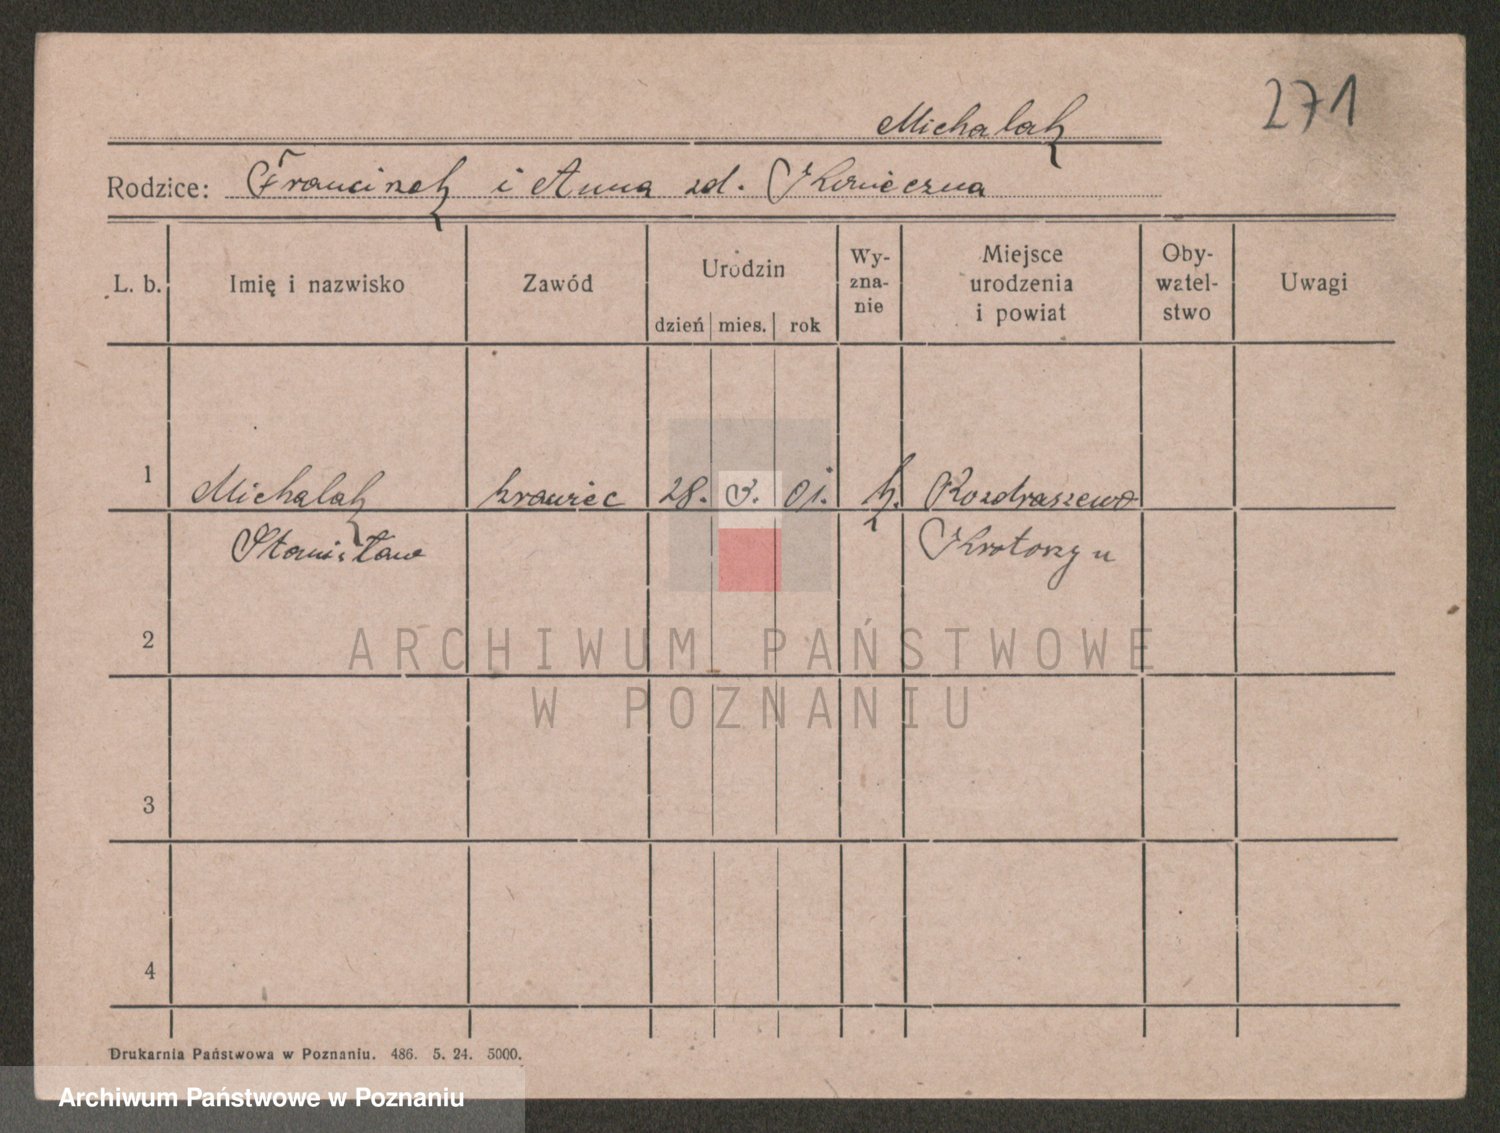 271
Michalak
Rodzice: Franciszek i Anna zd. Konieczna
L. b. Imię i nazwisko Zawód Urodzin dzień mies. rok Wy-zna-nie Miejsce urodzenia i powiat Oby-watel-stwo Uwagi
1 Michalak krawiec 28. 3. 01. k. Rozdraszewo
Stanisław Krotoszyn
2
ARCHIWUM PAŃSTWOWE
W POZNANIU
3
4
Drukarnia Państwowa w Poznaniu. 486. 5. 24. 5000.
Archiwum Państwowe w Poznaniu